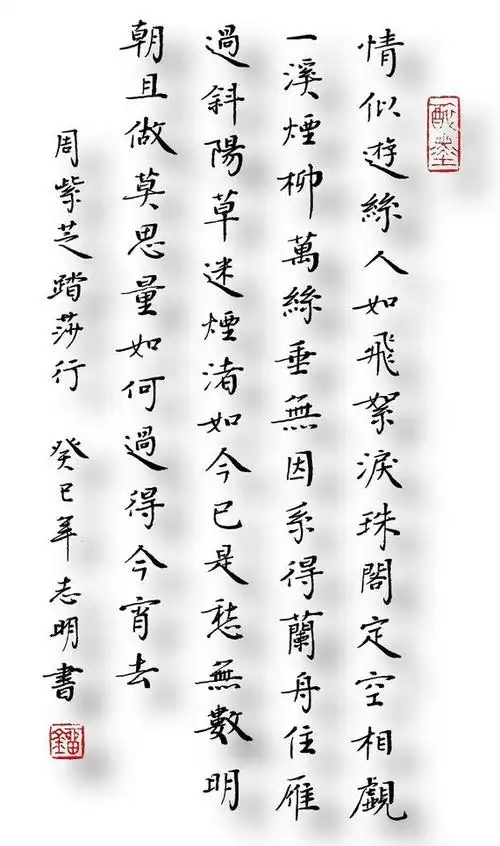 情似遊絲人如飛絮淚珠閣定空相覷
一溪煙柳萬絲垂無因系得蘭舟住雁
過斜陽草迷煙渚如今已是愁無數明
朝且做莫思量如何過得今宵去
周紫芝踏莎行 癸巳年志明書